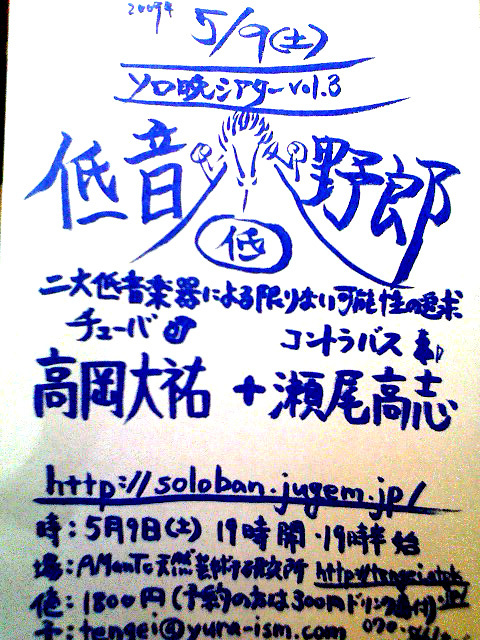 2009年
5/9(土)
ソロ晩シアターvol.3
低音 野郎
低
二大低音楽器による限りない可能性の追求
チューバ コントラバス
高岡大祐 + 瀬尾高志
http://soloban.jugem.jp/
時:5月9日(土) 19時開・19時半始
場:AManTo天然芸術研究所 http://tengei
値:1800円(予約の方は300円ドリンク
予:tengei@yura-ism.com 070-